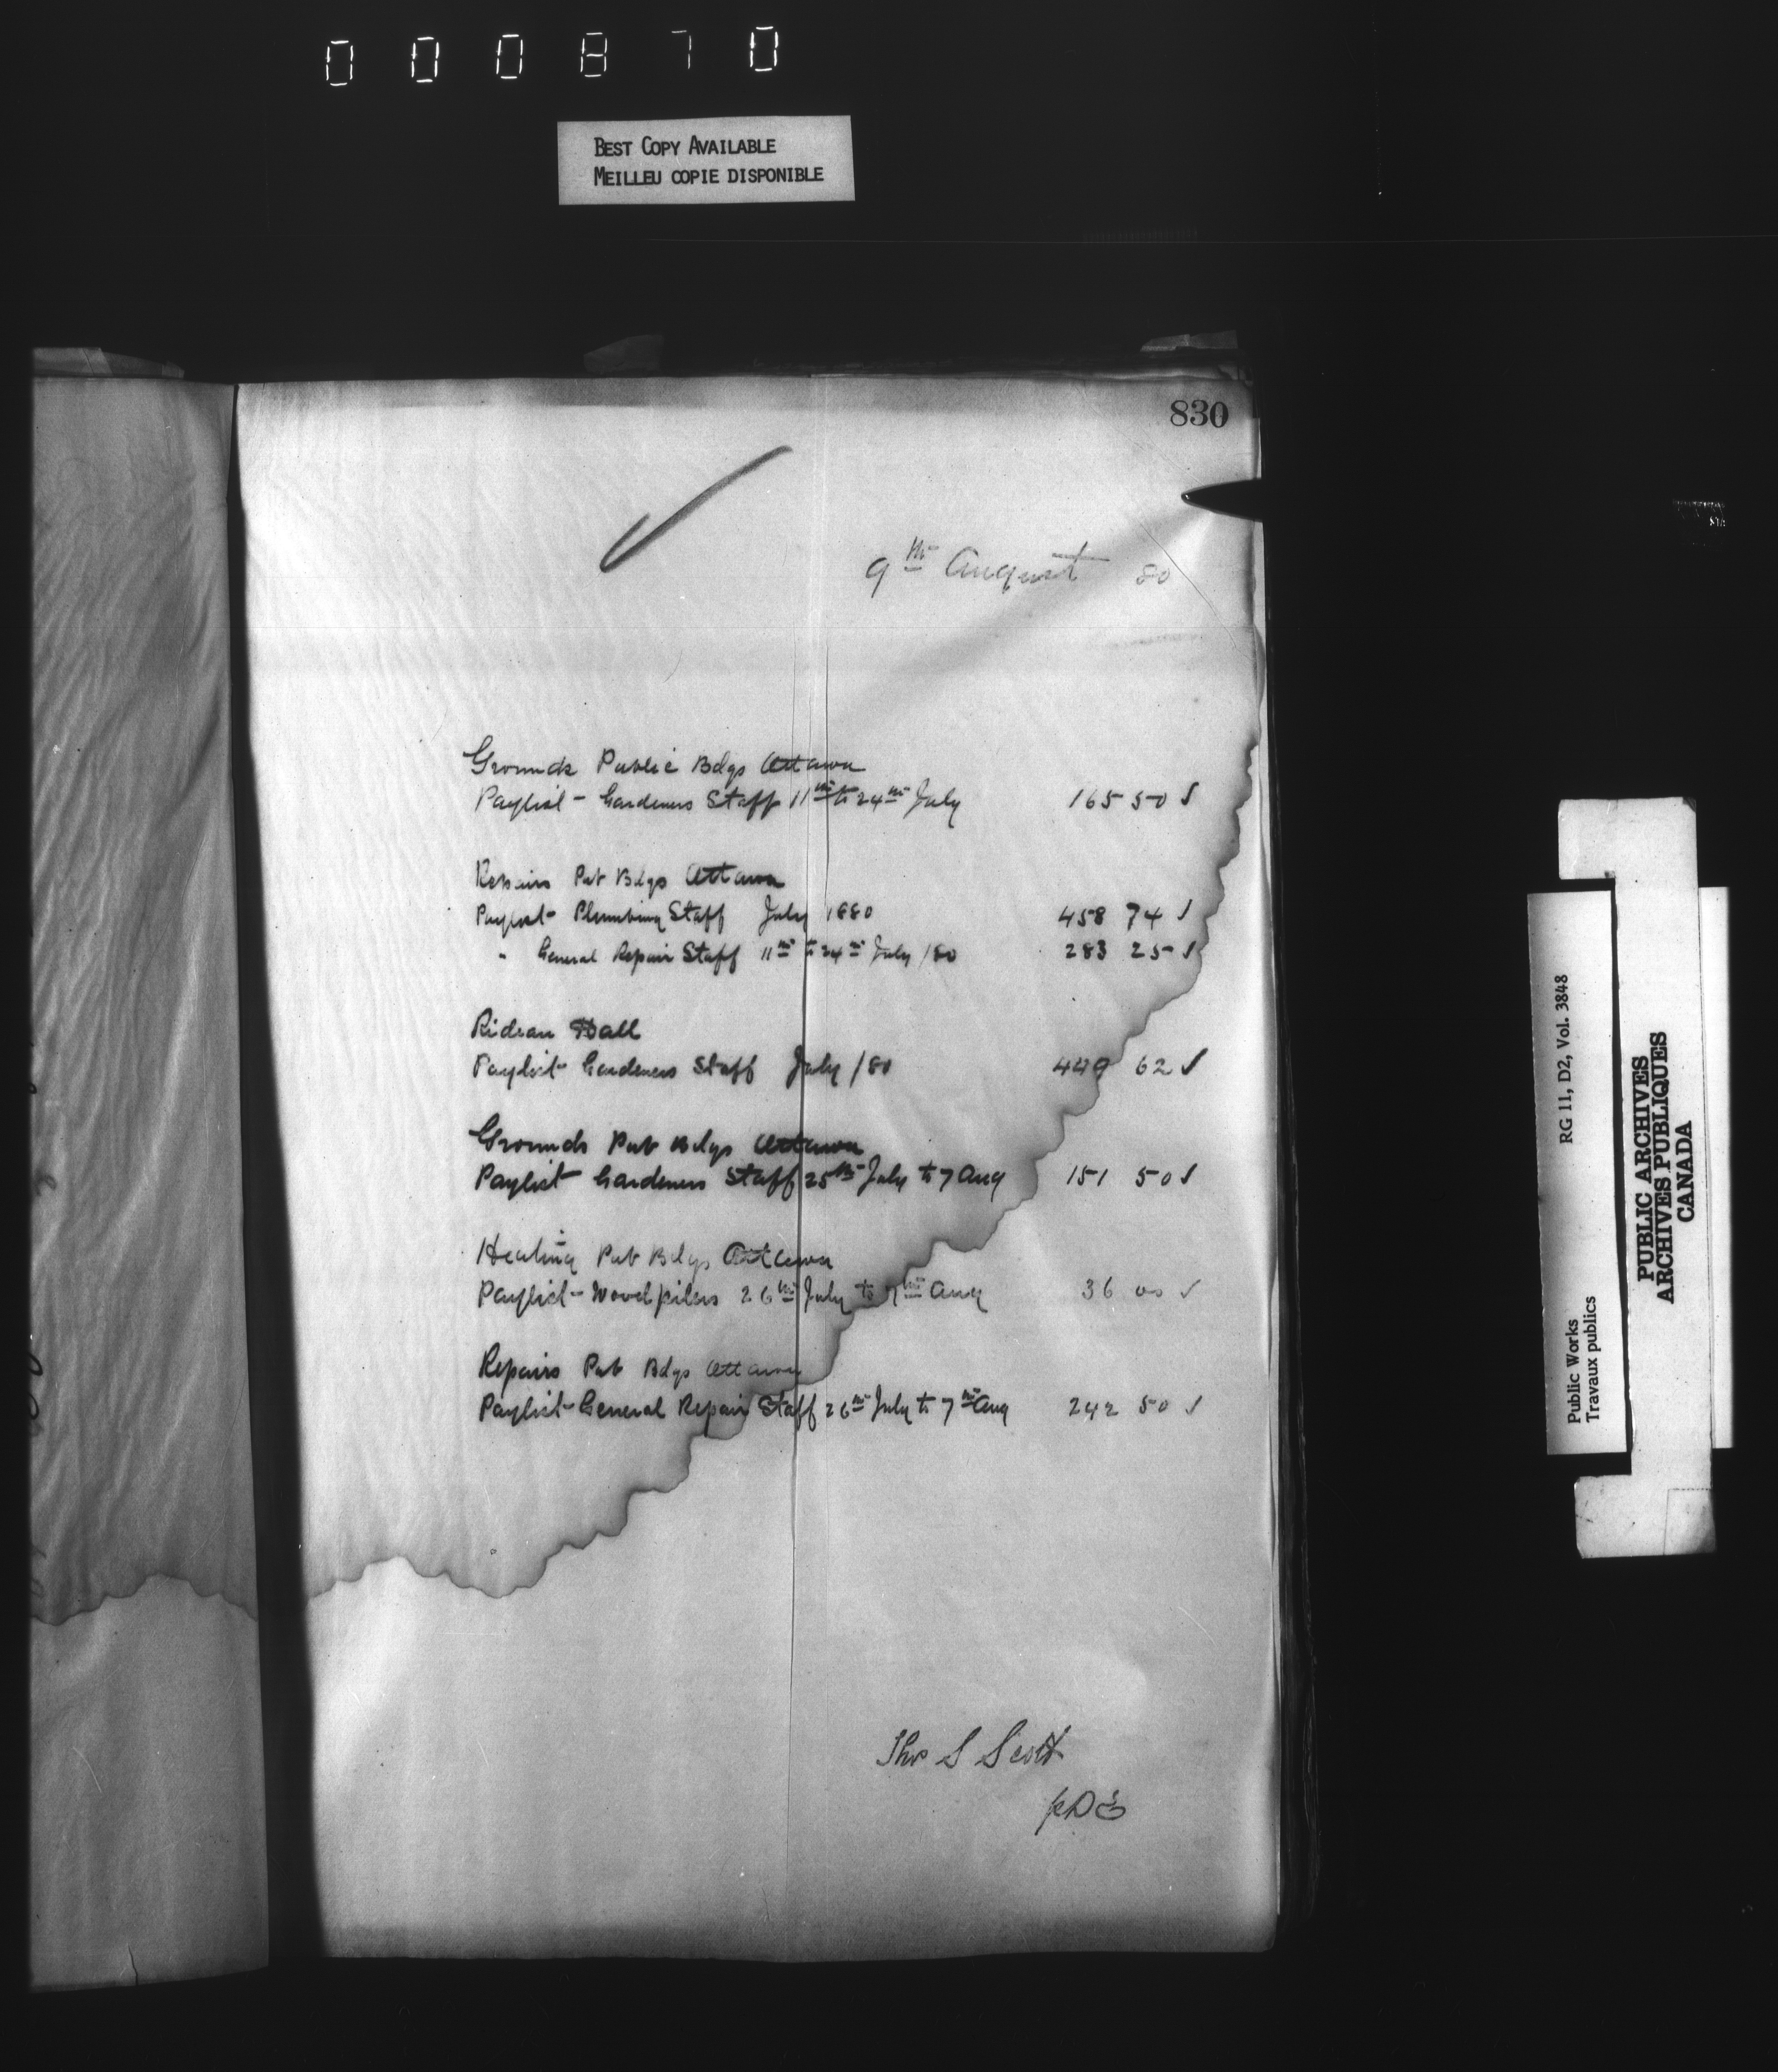 000870
BEST COPY AVAILABLE
MEILLEU COPIE DISPONIBLE
830
9th August 80
Grounds Public Bdgs Ottawa
Paylist - Gardeners Staff 11th to 24th July 165 50 ✓
Repairs Pub Bdgs Ottawa
Paylist - Plumbing Staff July 1880 458 74 ✓
" General Repair Staff 11th to 24th July /80 283 25 ✓
Rideau Hall
Paylist Gardeners Staff July /80 449 62 ✓
Grounds Pub Bdgs Ottawa
Paylist Gardeners Staff 25th July to 7 Aug 151 50 ✓
Heating Pub Bdgs Ottawa
Paylist - Wood pilers 26th July to 7th Aug 36 00 ✓
Repairs Pub Bdgs Ottawa
Paylist - General Repair Staff 26th July to 7th Aug 242 50 ✓
Thos S Scott
RG 11, D2, Vol. 3848
Public Works
Travaux publics
PUBLIC ARCHIVES
ARCHIVES PUBLIQUES
CANADA